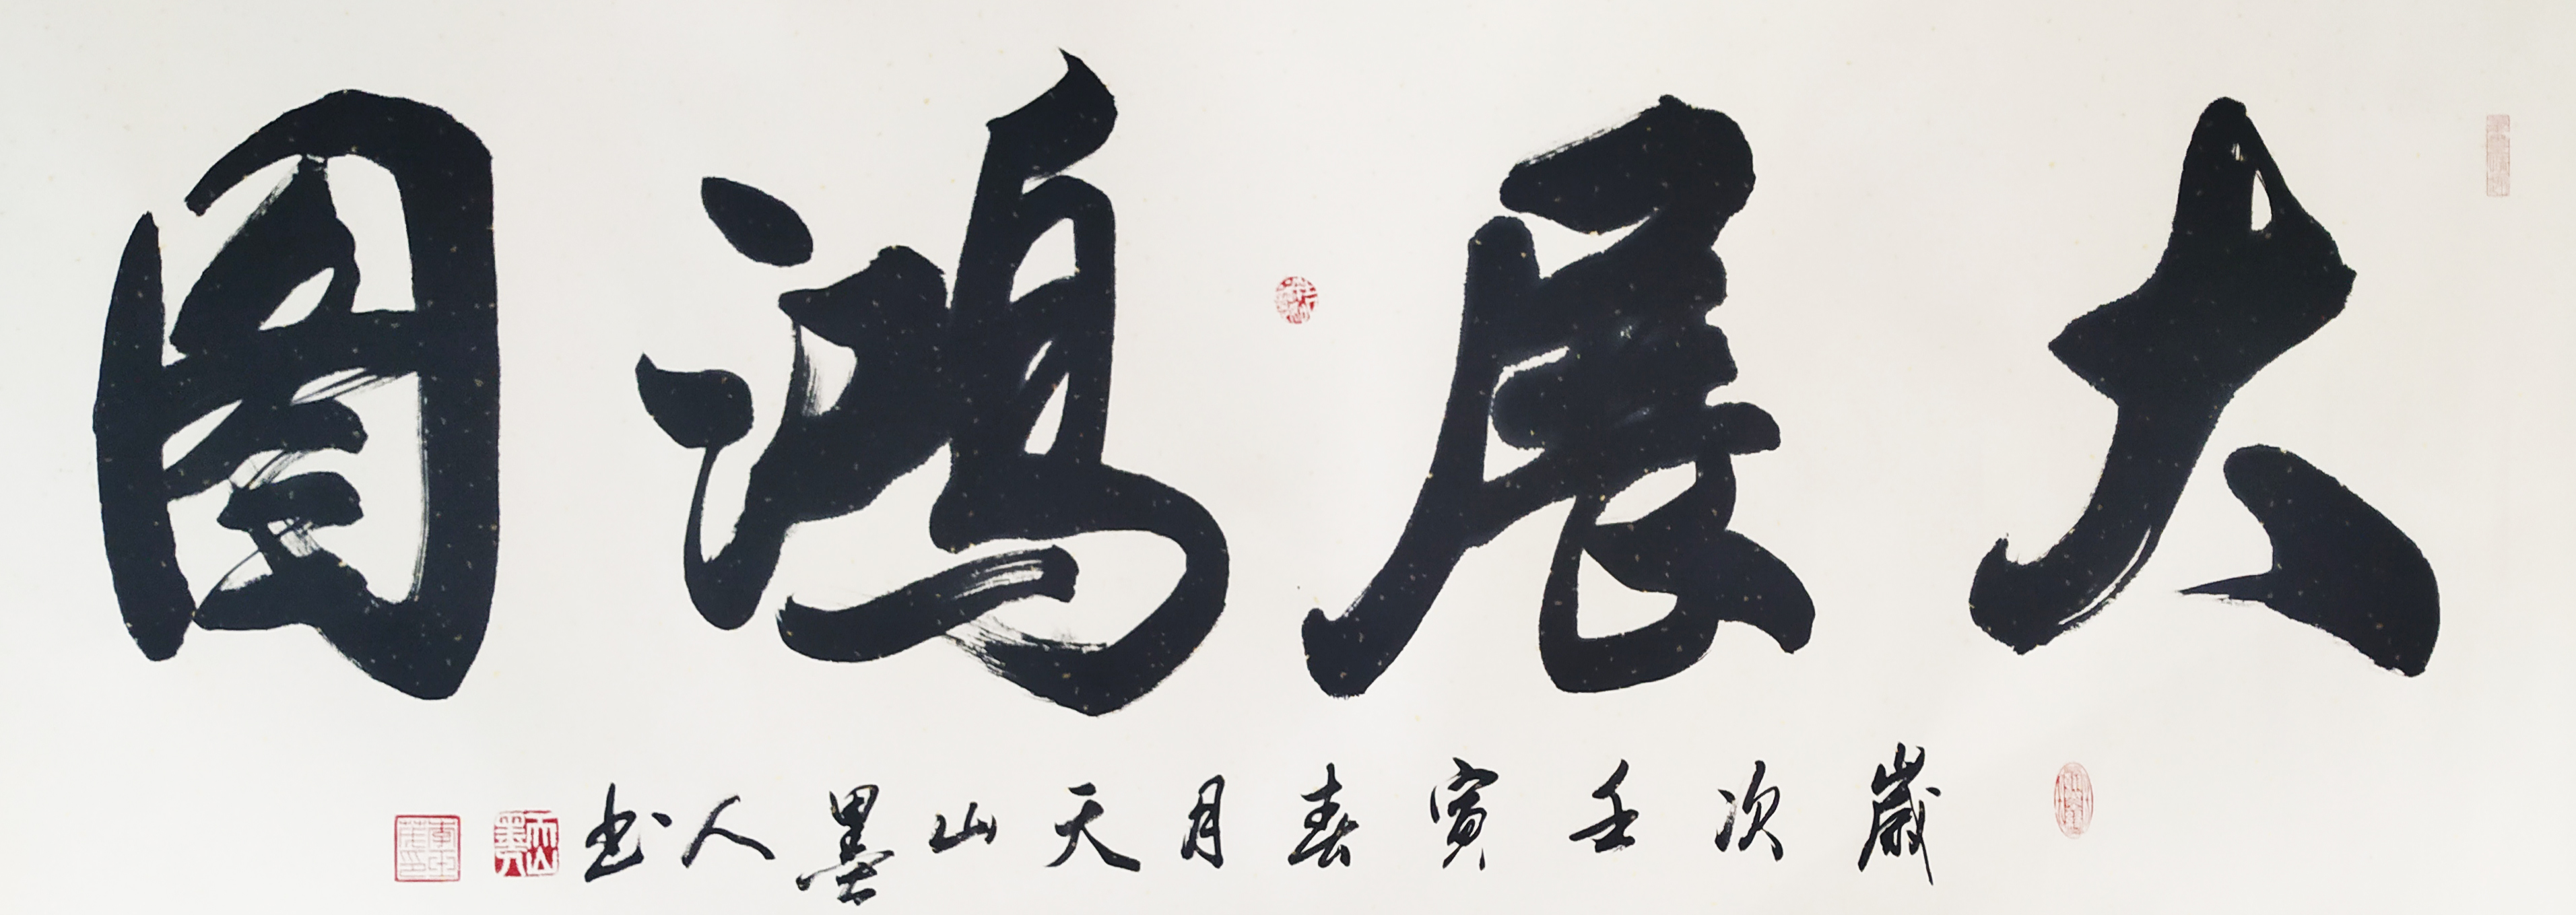 大展鴻圖
歲次壬寅春月天山墨人书